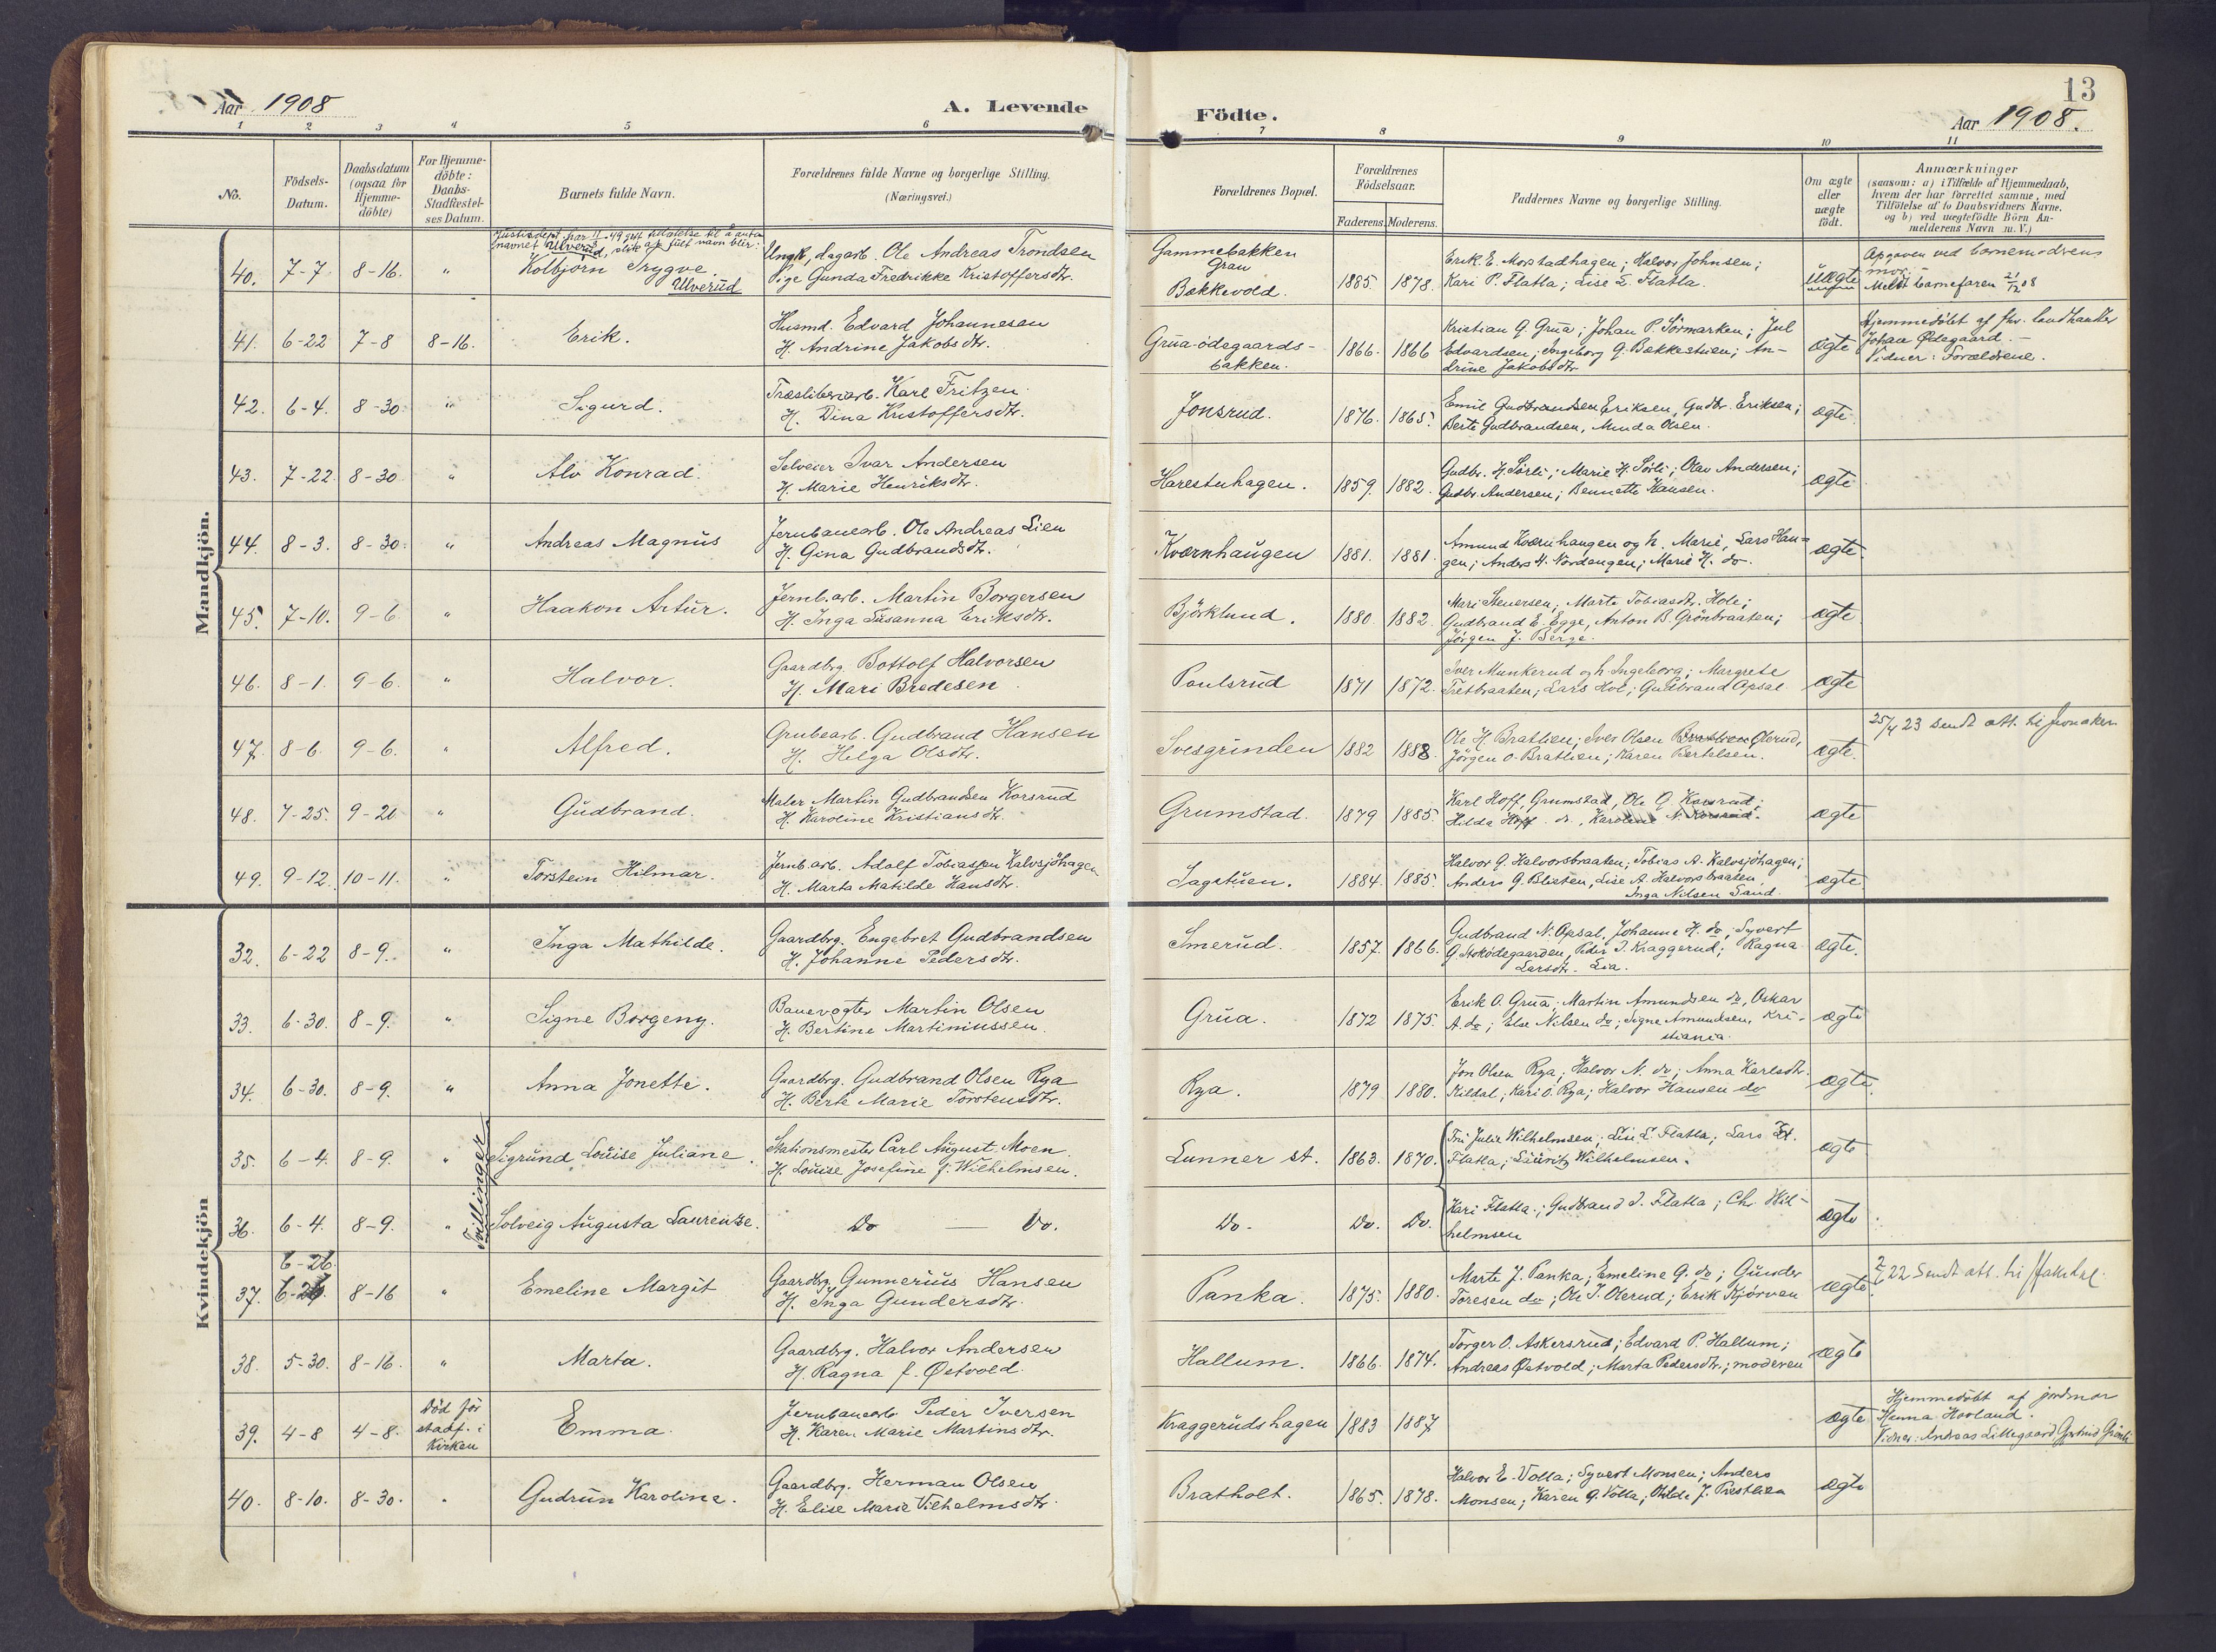 Aar 1908
A. Levende Födte.
13
Aar 1908.
1 2 3 4 5 6 7 8 9 10 11
No.
Födsels-Datum.
Daabsdatum (ogsaa for Hjemmedöbte)
For Hjemmedöbte: Daabs-Stadfæstelses Datum.
Barnets fulde Navn.
Forældrenes fulde Navne og borgerlige Stilling. (Næringsvei.)
Forældrenes Bopæl.
Forældrenes Födselsaar.
Faderens. Moderens.
Faddernes Navne og borgerlige Stilling.
Om ægte eller uægte födt.
Anmærkninger
(saasom: a) i Tilfælde af Hjemmedaab, hvem der har forrettet samme, med Tilföielse af to Daabsvidners Navne, og b) ved uegtefödte Börn Anmelderens Navn m. V.)
Mandkjön.
navnet Ulverud, slik at fult navn blir:
40. 7-7 8-16. " Kolbjörn Trygve. Ulverud
Ungk, dagarb. Ole Andreas Trondsen
Pige Gunda Fredrikke Kristoffersdtr.
Gammebakken
Gran
Bækkevold. 1885. 1878.
Erik E. Morstadhagen; Halvor Johnsen;
Kari P. Flatla; Lise L. Flatla.
Uægte
Opgaven ved barnemodrens
mor. -
Meldt barnefaren 21/12 08
41. 6-22 7-8 8-16. Erik.
Husmd. Edvard Johannesen
H. Andrine Jakobsdtr.
Grua-ödegaards-
bakken. 1866. 1866
Kristian G. Grua; Johan P. Sörmarken; Jul
Edvardsen; Ingeborg G. Bækkestuen; An-
drine Jakobsdtr
ægte
Hjemmedöbt af fhv. landhandler
Johan Ødegaard. -
Vidner: Forældrene.
42. 6-4. 8-30 " Sigurd.
Træsliberiarb. Karl Fritzen
H. Dina Kristoffersdtr.
Jonsrud. 1876. 1865.
Emil Gudbrandsen Eriksen, Gudbr. Eriksen;
Berte Gudbrandsen, Minda Olsen.
ægte
43. 7-22. 8-30 " Alv Konrad.
Selveier Ivar Andersen
H. Marie Henriksdtr.
Harestuhagen. 1859. 1882.
Gudbr. H. Sörli; Marie H. Sörli; Olav Andersen;
Gudbr. Andersen; Bennette Hansen.
ægte
44. 8-3. 8-30. " Andreas Magnus
Jernbanearb. Ole Andreas Lien
H. Gina Gudbrandsdtr.
Kværnhaugen 1881. 1881.
Amund Kværnhaugen og h. Marie, Lars Hau-
gen; Anders H. Nordengen; Marie H. do.
ægte.
45. 7-10. 9-6 " Haakon Artur.
Jernb.arb. Martin Borgersen
H. Inga Susanna Eriksdtr.
Björklund. 1880. 1882.
Mari Stenersen; Marte Tobiasdtr. Hole;
Gudbrand E. Egge, Anton B. Grönbraaten;
Jörgen J. Berge.
ægte
46. 8-1. 9-6. " Halvor.
Gaardbrg. Bottolf Halvorsen
H. Mari Bredesen
Poulsrud 1871 1872.
Iver Munkerud og h. Ingeborg; Margrete
Tretbraaten; Lars Hol; Gudbrand Opsal
ægte
47. 8-6. 9-6. " Alfred.
Grubearb. Gudbrand Hansen
H. Helga Olsdtr.
Svesgrinden 1882 1888
Ole H. Bratlien; Iver Olsen Bratlien Olerud,
Jörgen O. Bratlien; Karen Bertelsen.
ægte.
25/4 23 sendt att. til Jevnaker
48. 7-25. 9-20 " Gudbrand.
Maler Martin Gudbrandsen Korsrud
H. Karoline Kristiansdtr.
Grumstad. 1879 1885.
Karl Hoff, Grumstad, Ole G. Korsrud;
Hilda Hoff do., Karoline N. Korsrud.
ægte
49. 9-12. 10-11. " Torstein Hilmar.
Jernb.arb. Adolf Tobiassen Kalvsjöhagen
H. Marta Matilde Hansdtr.
Sagstuen. 1884. 1885.
Halvor G. Halvorsbraaten; Tobias A. Kalvsjöhagen;
Anders G. Blieten, Lise A. Halvorsbraaten
Inga Nilsen Sand.
ægte
Kvindekjön
32. 6-22 8-9. " Inga Mathilde.
Gaardbrg. Engebret Gudbrandsen
H. Johanne Pedersdtr.
Smerud. 1857. 1866.
Gudbrand N. Opsal, Johanne H. do; Syvert
G. Stoködegaarden, Peder I. Kraggerud; Ragna
Larsdtr. Lia.
ægte.
33. 6-30. 8-9. " Signe Borgeny.
Banevogter Martin Olsen
H. Bertine Martiniussen.
Grua. 1872 1875.
Erik O. Grua; Martin Amundsen do, Oskar
A. do; Else Nilsen do; Signe Amundsen, Kri-
stiania.
ægte
34. 6-30. 8-9. " Anna Jonette.
Gaardbrg. Gudbrand Olsen Rya
H. Berte Marie Torstensdtr.
Rya. 1879 1880.
Jon Olsen Rya; Halvor N. do; Anna Karlsdtr.
Kildal; Kari O. Rya; Halvor Hansen do
ægte.
Tvillinger
35. 6-4. 8-9. " Sigrund Louise Juliane.
Stationsmester Carl August Moen.
H. Louise Josefine f. Wilhelmsen.
Lunner st. 1863. 1870.
Frü Julie Wilhelmsen; Lise L. Flatla; Lars
Flatla; Lauritz Wilhelmsen.
ægte
36. 6-4. 8-9. " Solveig Augusta Laurentze.
Do — Do.
Do. Do. Do.
Kari Flatla; Gudbrand I. Flatla; Ch. Wil-
helmsen
ægte
6-26.
37. 6-26. 8-16 " Emeline Margit
Gaardbrg. Gunnerius Hansen
H. Inga Gundersdtr.
Panka. 1875. 1880.
Marte J. Panka; Emeline G. do; Gunder
Toresen do; Ole I. Olerud; Erik Kjörven
ægte.
22 Sendt att. til
38. 5-30. 8-16. " Marta.
Gaardbrg. Halvor Andersen
H. Ragna f. Østvold.
Hallum. 1866. 1874.
Torger O. Askersrud; Edvard P. Hallum;
Andreas Østvold; Marta Pedersdtr.; moderen
ægte
39. 4-8 4-8. Död för stadf. i Kirken Emma.
Jernbanearb. Peder Iversen
H. Karen Marie Martinsdtr.
Kraggerudshagen 1883 1887
ægte
Hjemmedöbt af jordmor
Henna Hovland.
Vidner: Andreas Lillegaard, Gjertrud
40. 8-10. 8-30. " Gudrun Karoline.
Gaardbrg. Herman Olsen
H. Elise Marie Vilhelmsdtr.
Bratholt. 1865. 1878.
Halvor E. Volla; Syvert Monsen; Anders
Monsen; Karen G. Volla; Hilda J. Prestlien
ægte